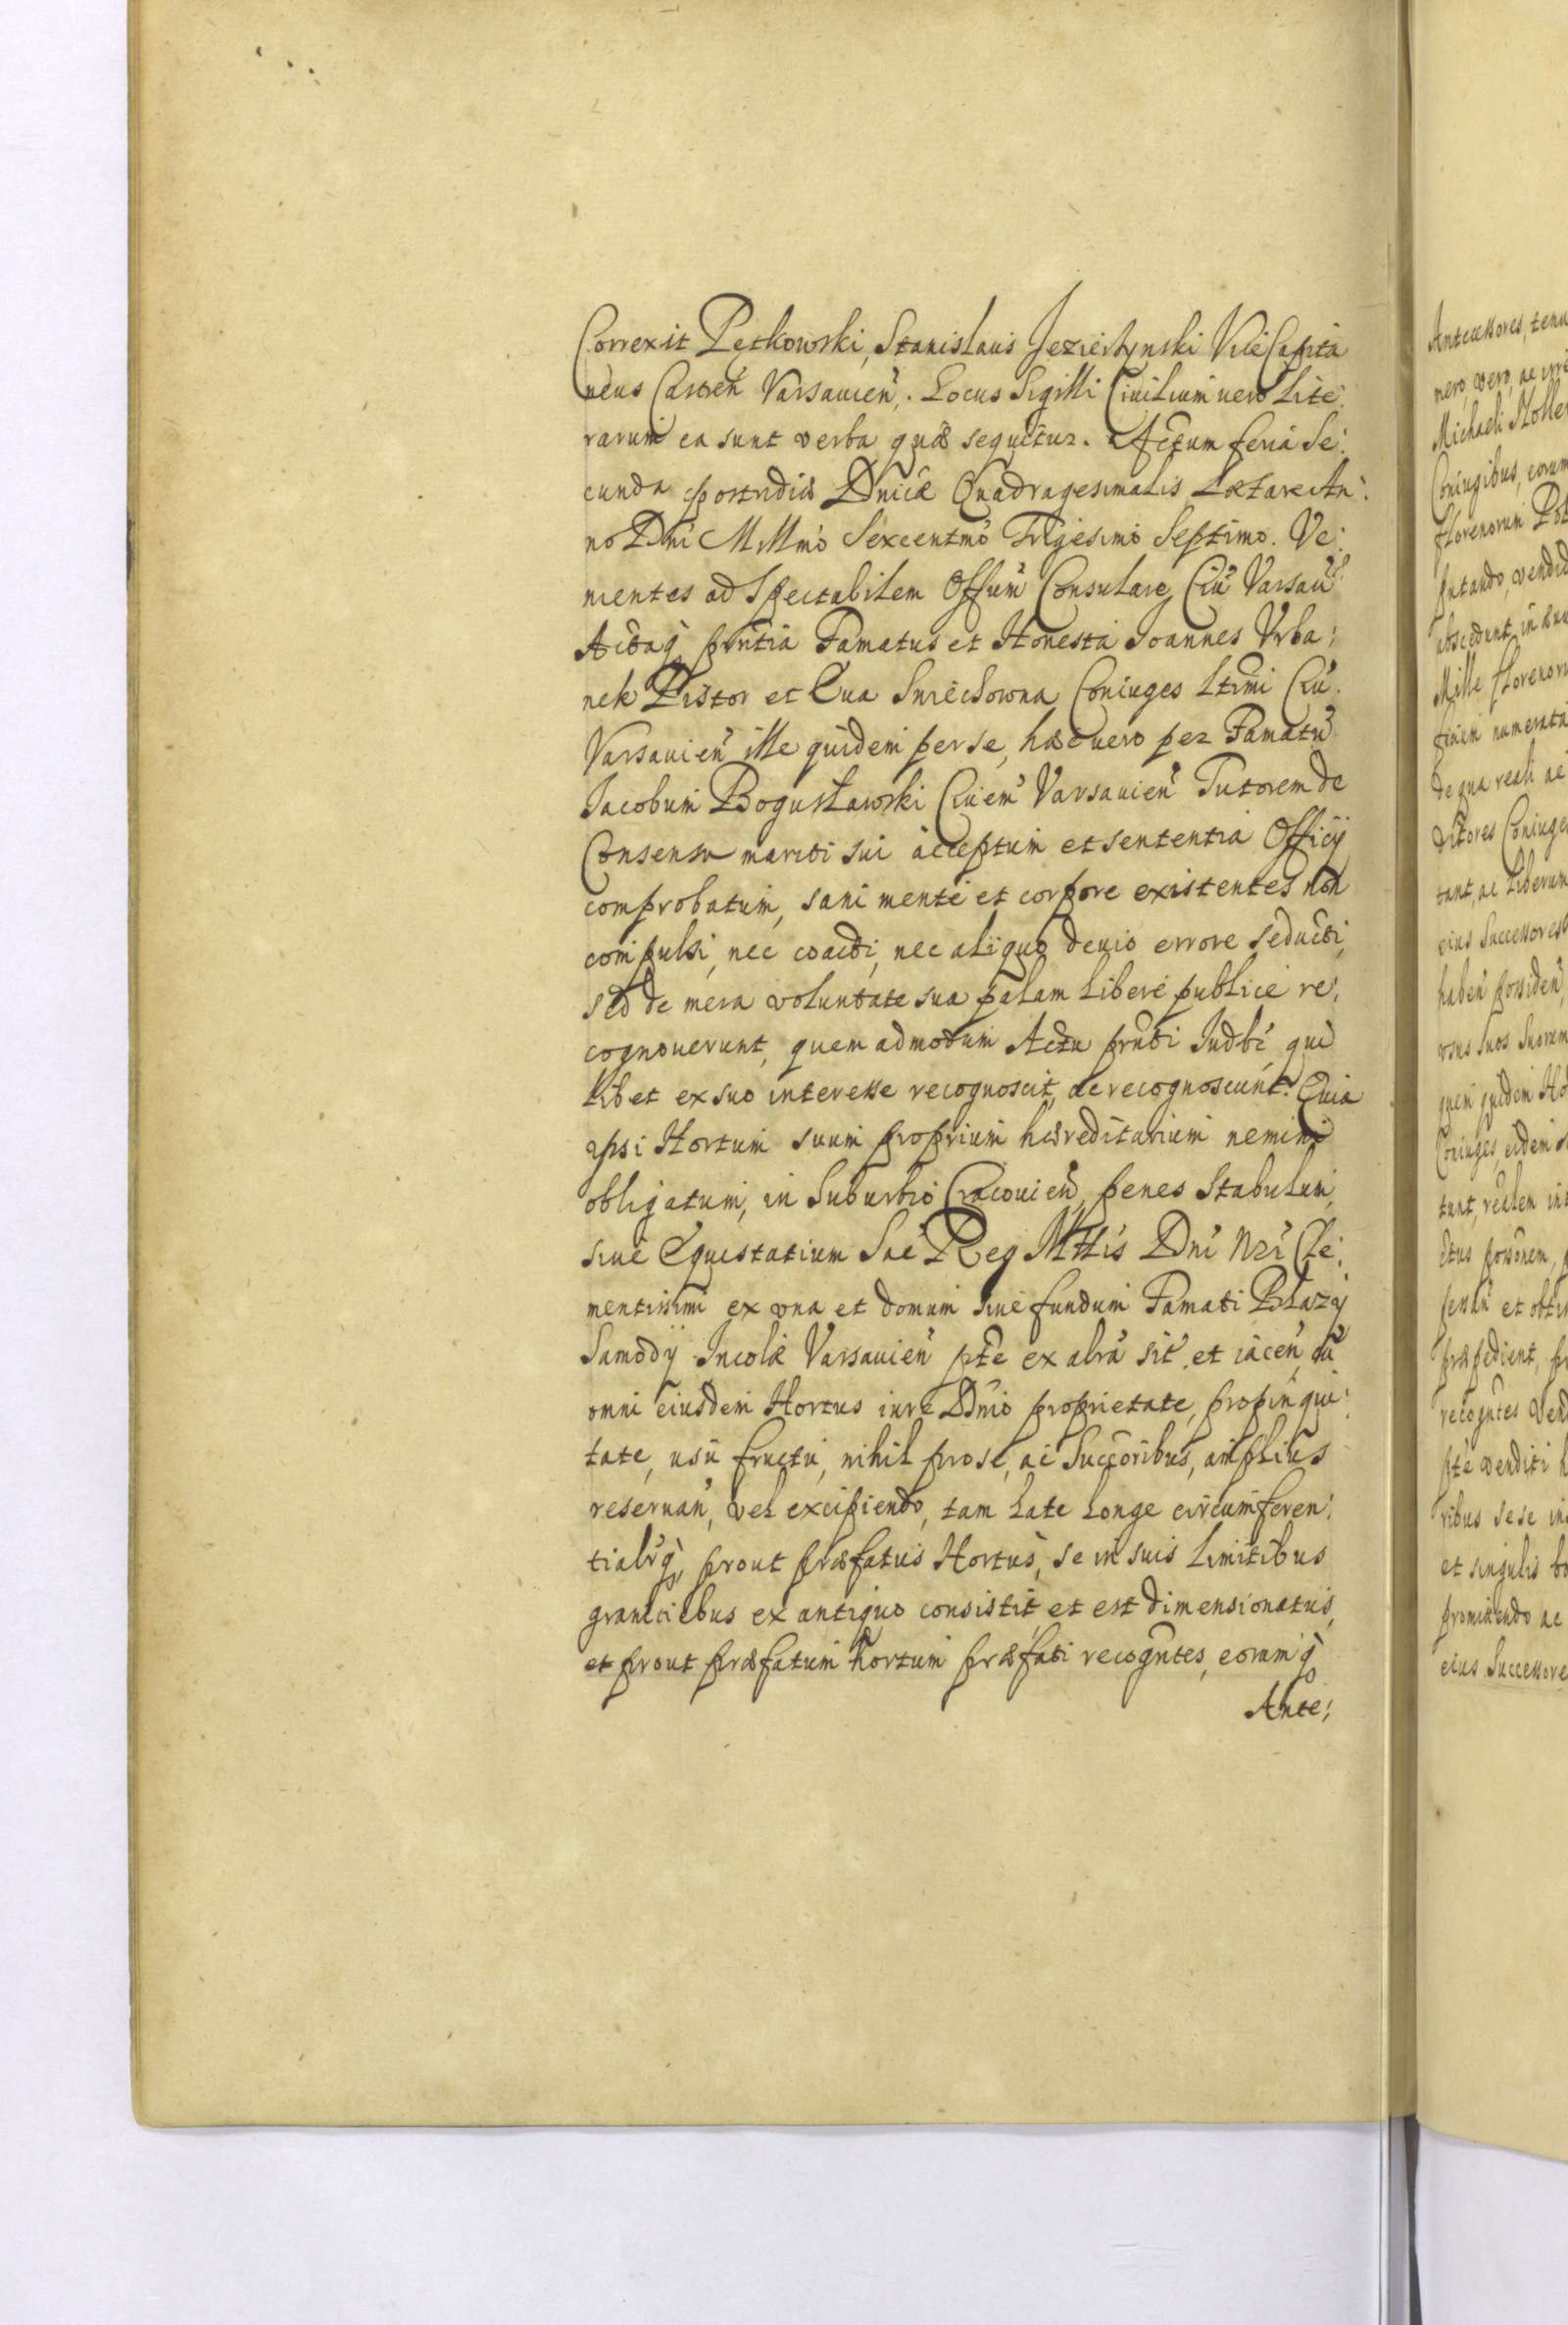 Correxit Pętkowski, Stanislaus Jezierzynski ViceCapita
neus Castren Varsauien̄. Locus Sigilli Ciuilium vero Lite:
rarum ea sunt verba quæ sequitur. Actum feria Se:
cunda postridiæ Dnicæ Quadragesimalis Lætare An:
no Dni Millmo Sexcentmo Trigesimo Septimo. Ve:
nientes ad Spectabilem Offum Consulare Ciu Varsau
Actaq̢ pntia Famatus et Honesta Joannes Vrba:
nek Pistor et Eua Coniuges Ltimi Ciu.
Varsauien ille quidem per se, hæc vero per Famatu
Jacobum Bogusławski Ciuem Varsauien Tutorem de
Consensu mariti sui acceptum et sententia Officij
comprobatum, sani mente et corpore existentes non
compulsi, nec coacti, nec aliquo deuio errore seducti,
sed de mera voluntate sua palam libere publice re:
cognouerunt, quem admodum Actu prnti Judbi qui
libet ex suo interesse recognoscit, ac recognoscunt. Quia
ipsi Hortum suum proprium hæreditarium nemini
obligatum, in Suburbio Cracouien, penes Stabulum,
siue Equestatium Sae Reg Mttis Dni Nri Cle:
mentissimi ex vna et domum siue fundum Famati Blazy
Samody Incolæ Varsauien pte ex altra sit et iacen cu
omni eiusdem Hortus iure Dnio proprietate, propinqui:
tate, usu fructu, nihil pro se, ac Succoribus, amplius
reseruan, vel excipiendo, tam late longe circumferen:
tialrq̢, prout præfatus Hortus, se in suis limitibus
graniciebus ex antiquo consistit et est dimensionatus,
et prout præfatum hortum præfati recogntes, eorumq̢
Ante:
Antecessores, tenu
mero, vero, ac
Michaeli
Coniugibus, eorum
florenorum Pol
putando, vendid
abscedunt, in
Mille florenor
numerata
de qua reali ac
ditores Coniuge
tant, ac Liberum
eius Successores
haben possiden
vsus suos Suorum
quem quidem Ho
Coniuges, eidem
tunt, realem int
possonem, p
et obti
præpedient, pr
recogntes Vend
pte venditi h
ribus sese in
et singulis bo
promittendo ac
eius Successore